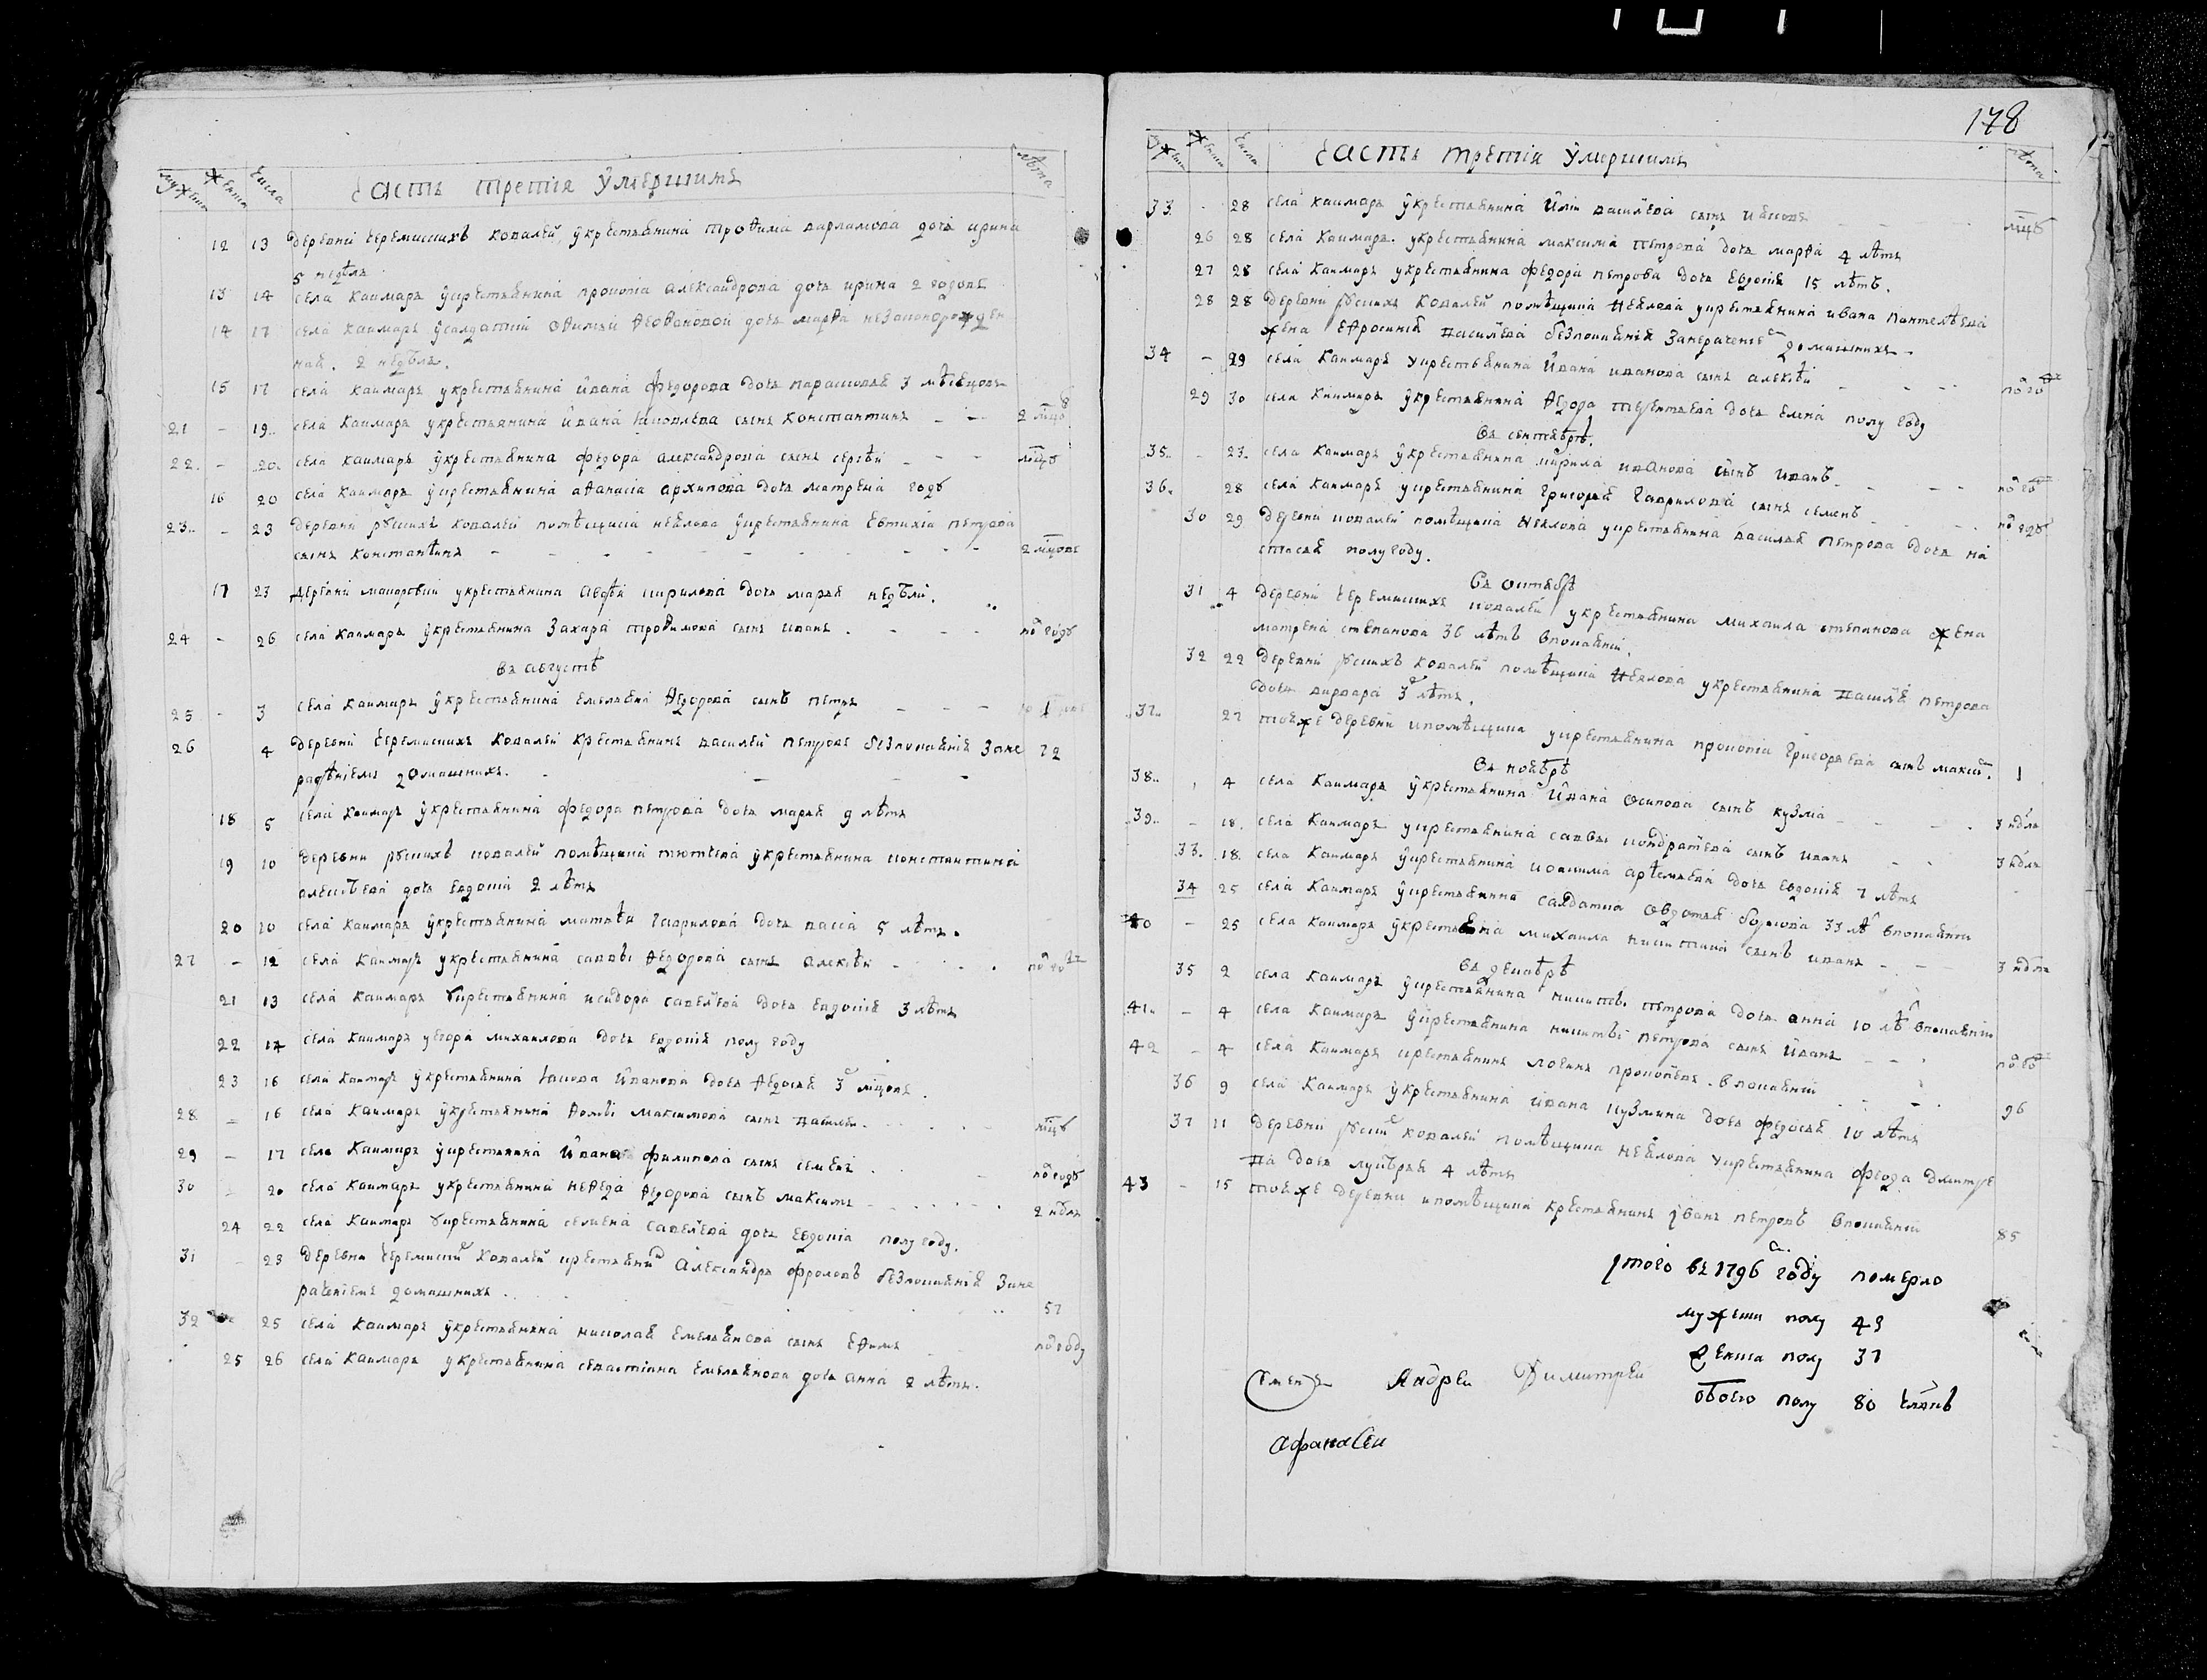 мужеска женска Числа Часть третія ўмершимъ лѣта
12 13 деревни черемискихъ ковалей ўкрестьянина трофима варламова дочь ирина
5 недѣль
13 14 села каимаръ ўкрестьянина прокопіа александрова дочь ирина 2 годовъ
14 17 села каимаръ ўсалдатки ѳеофановой дочь марѳа незаконорожден
ная. 2 недѣль.
15 17 села каимаръ укрестьянина ивана федорова дочь парасковья 3 мѣсяцовъ
21 - 19 села каимаръ укрестьянина ивана іаковлева сынъ константинъ - - 2 мцовъ
22 - 20 села каимаръ ўкрестьянина федора александрова сынъ сергѣи - - - мцъ
16 20 села каимаръ ўкрестьянина аѳанасіа архипова дочь матрена годъ
23 - 23 деревни рускихъ ковалей помѣщика неялова ўкрестьянина евтихіа петрова
сынъ константинъ - - - - - - - - - 2 мцовъ
17 23 деревни маиорской укрестьянина авдѣя кирилова дочь марья недѣли.
24 - 26 села каимаръ ўкрестьянина захара троѳимова сынъ иванъ - - - - полгода
въ августѣ
25 - 3 села каимаръ ўкрестьянина емельяна ѳедорова сынъ петръ - - -
26 4 деревни черемискихъ ковалей крестьянинъ василей петровъ безпокаянія зане 72
радѣніемъ домашнихъ. - - -
18 5 села каимаръ ўкрестьянина федора петрова дочь марья 9 лѣтъ
19 10 деревни рускихъ ковалей помѣщика тютчева ўкрестьянина константина
алексѣева дочь евдокіа 2 лѣтъ
20 10 села каимаръ ўкрестьянина матвѣя гаврилова дочь васса 5 лѣтъ.
27 - 12 села каимаръ ўкрестьянина саввы ѳедорова сынъ алексѣи - - - - полгода
21 13 села каимаръ ўкрестьянина исидора савельева дочь евдокія 3 лѣтъ
22 14 села каимаръ уегора михаилова дочь евдокія полу году
23 16 села каимаръ ўкрестьянина іакова ивановa дочь ѳедосья 3 мцовъ
28 - 16 села каимаръ ўкрестьянина ѳомы максимова сынъ василеи. - - - - мцъ
29 - 17 села каимаръ ўкрестьянина ивана филипова сынъ семенъ - - полгода
30 - 20 села каимаръ укрестьянина неѳеда ѳедорова сынъ максимъ - - - - 2 ндли
24 22 села каимаръ ўкрестьянина семена савельева дочь евдокіа полу году.
31 - 23 деревни черемиски ковалей крестьянинъ александръ фроловъ безпокаянія зане
раченіемъ домашнихъ. - - - 57
32 25 села каимаръ ўкрестьянина николая емельянова сынъ еѳимъ - полгоду
25 26 села каимаръ укрестьянина севастіана емельянова дочь анна 2 лѣтъ.
178
мужеска женска Числа Часть третія ўмершимъ лѣта
33 - 28 села каимаръ ўкрестьянина иліи василева сынъ - - - мцъ
26 28 села каимаръ. укрестьянина максима петрова дочь марѳа 4 лѣтъ
27 28 села каимаръ укрестьянина федора петрова дочь 15 лѣтъ.
28 28 деревни рускихъ ковалей помѣщика неялова укрестьянина ивана пантелѣева
жена еѳросинія василева безпокаянія занераченіе домашнихъ -
34 - 29 села каимаръ укрестьянина ивана иванова сынъ алексѣи - - - полгода
29 30 села каимаръ ўкрестьянина ѳедора терентьева дочь елена полу году
въ сентябрѣ.
35 - 23 села каимаръ ўкрестьянина кирила иванова сынъ иванъ - - - полгода
36 28 села каимаръ укрестьянина григорья гаврилова сынъ семенъ - - - полгода
30 29 деревни ковалей помѣщика неялова укрестьянина василья петрова дочь на
стасья полугоду.
въ октябрѣ
31 4 деревни черемискихъ ковалей укрестьянина михаила степанова жена
матрена степанова 36 лѣтъ впокаянии.
32 22 деревни рускихъ ковалей помѣщика неялова укрестьянина василья петрова
дочь варвара 3 лѣтъ.
37 27 тояже деревни ипомѣщика укрестьянина прокопіа григорьева сынъ максимъ. 1
въ ноябрѣ
38 4 села каимаръ ўкрестьянина ивана осипова сынъ кузма - - - 3 ндли
39 - 18 села каимаръ укрестьянина саввы кондратева сынъ иванъ - - 3 ндли
33 18 села каимаръ ўкрестьянина иоакима артемьева дочь евдокія 7 лѣтъ
34 25 села каимаръ ўкрестьянина салдатка овдотья борисова 33 лѣ впокаянии
40 - 25 села каимаръ ўкрестьянина михаила никитина сынъ иванъ - - 3 ндли
въ декабрѣ
35 2 села каимаръ ўкрестьянина никиты петрова дочь анна 10 лѣ впокаянии
41 - 4 села каимаръ ўкрестьянина никиты петрова сынъ иванъ - - - полгода
42 - 4 села каимаръ крестьянинъ логинъ прокопевъ. впокаянии - - 96
36 9 села каимаръ ўкрестьянина ивана кузмина дочь федосья 10 лѣтъ
37 11 деревни руски ковалей помѣщика неялова укрестьянина феода дмитре
ва дочь лукерья 4 лѣтъ
43 - 15 тояже деревни ипомѣщика крестьянинъ иванъ петровъ впокаянии 85
Итого въ 1796 году померло
мужеска полу 43
женска полу 37
обоего полу 80 члвкъ
Андреи Димитреи
Афанасеи